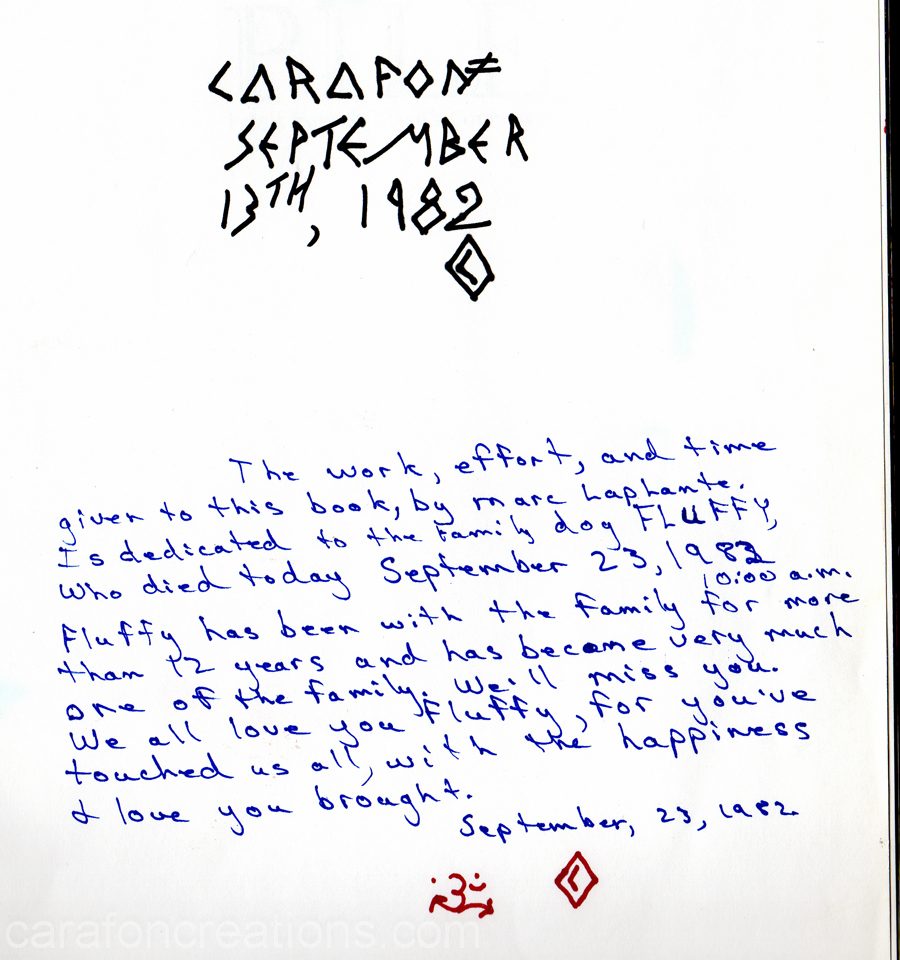 CARAFON
SEPTEMBER
13TH, 1982
The work, effort, and time
given to this book, by marc Laphante.
Is dedicated to the family dog FLUFFY,
who died today September 23, 1982
10:00 a.m.
Fluffy has been with the family for more
than 12 years and has become very much
one of the family. We'll miss you.
We all love you Fluffy, for you've
touched us all, with the happiness
& love you brought.
September, 23, 1982.
carafoncreations.com